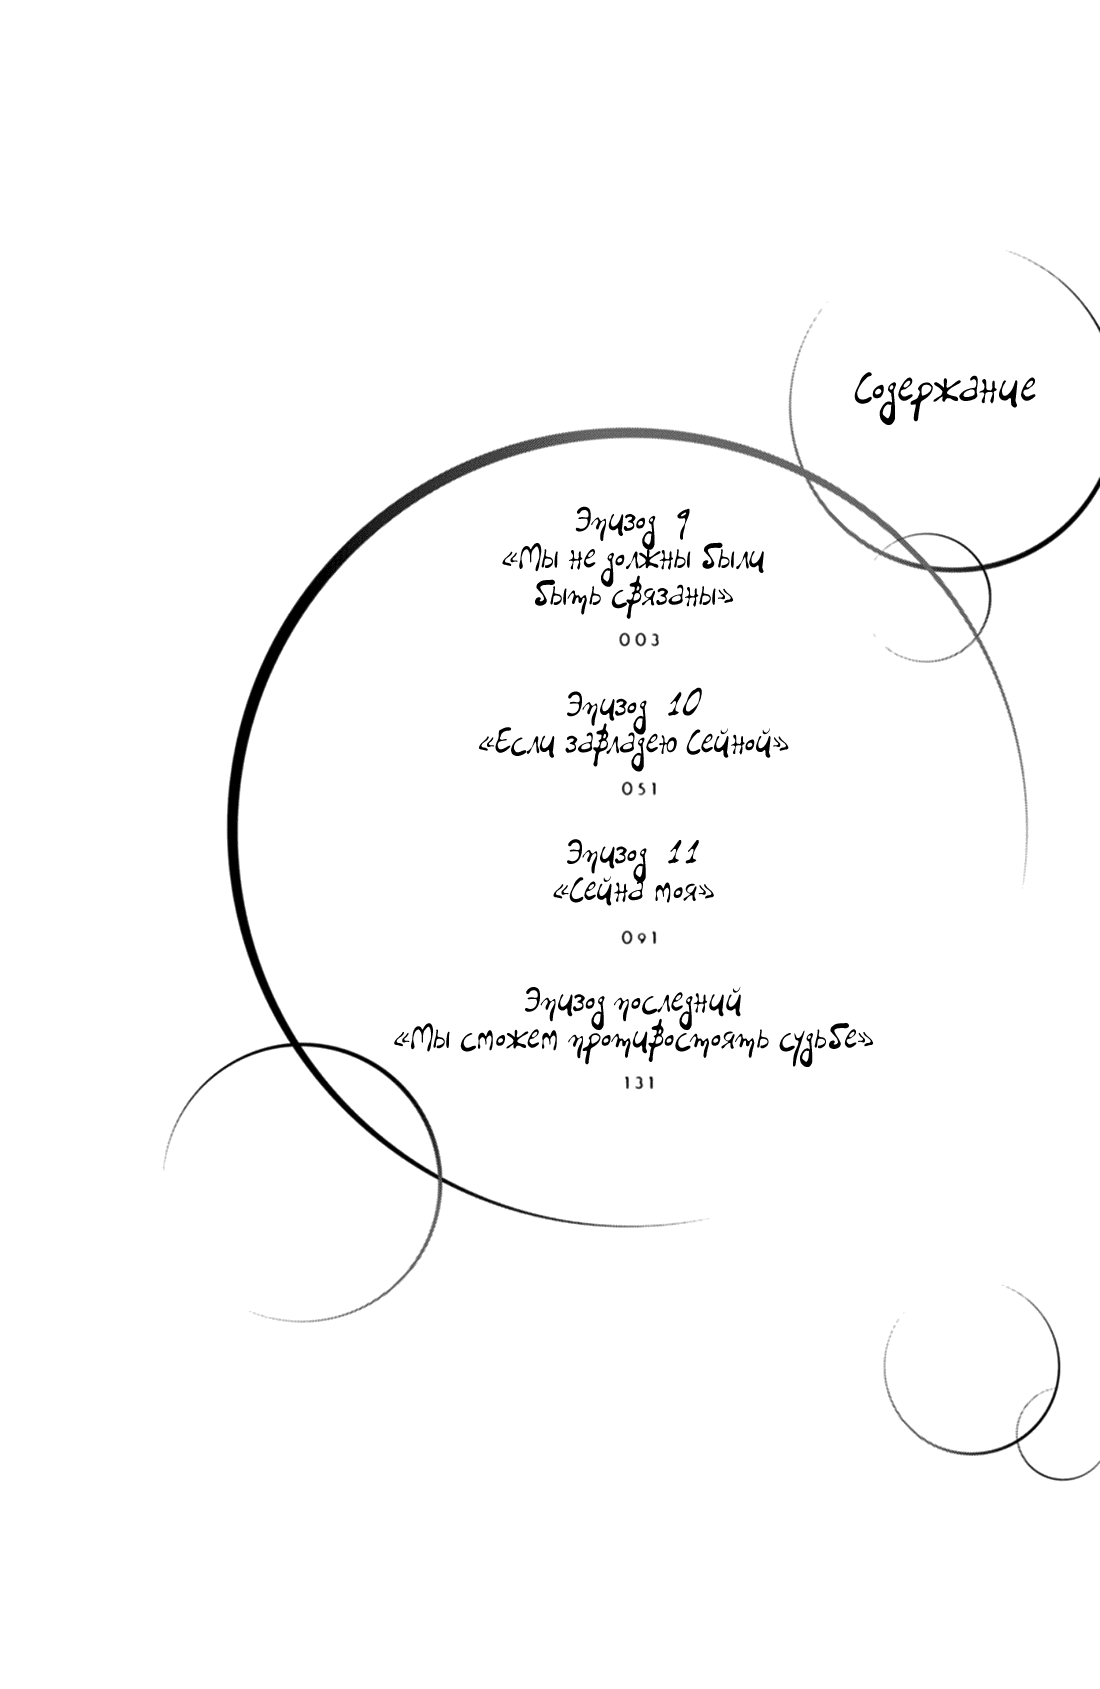 Содержание
Эпизод 9
«Мы не должны были
быть связаны»
003
Эпизод 10
«Если завладею Сейной»
051
Эпизод 11
«Сейна моя»
091
Эпизод последний
«Мы сможем противостоять судьбе»
131